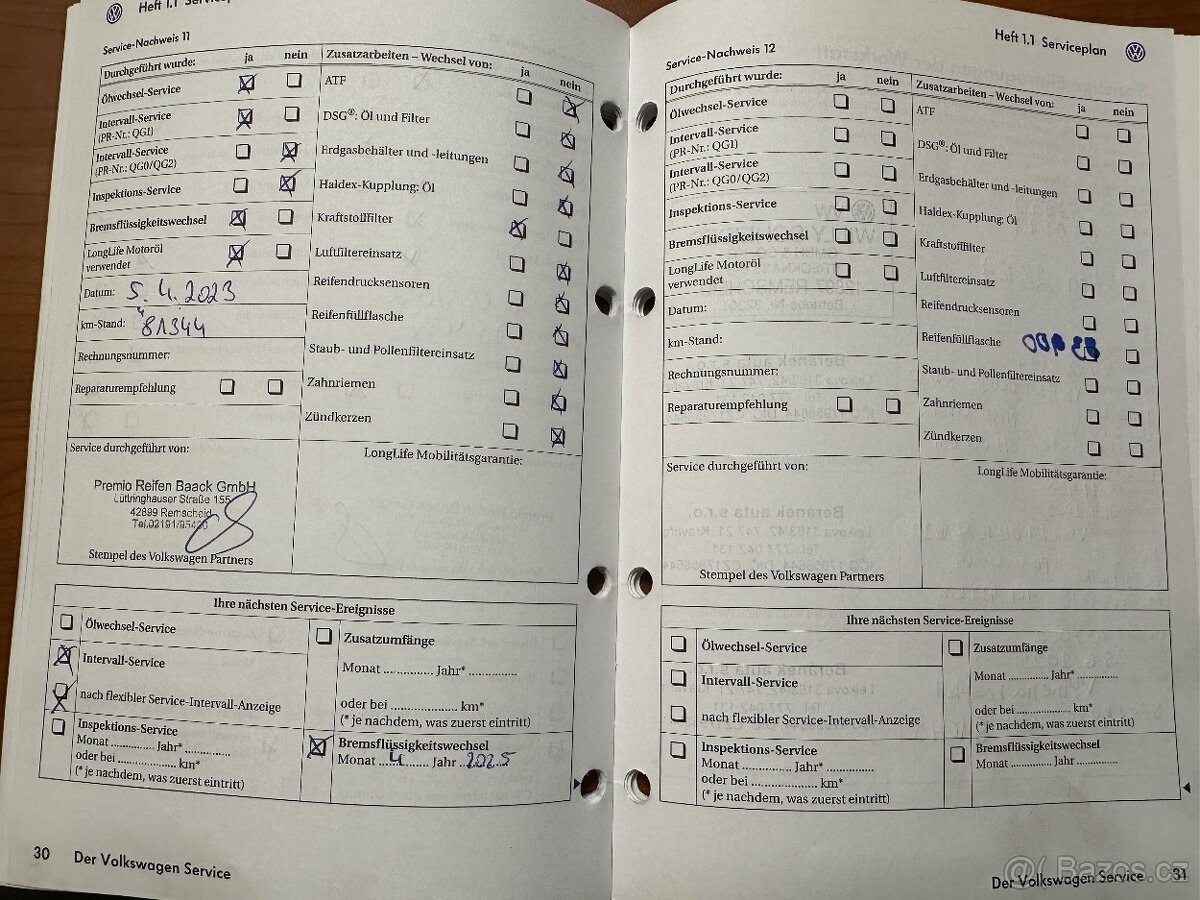 Heft 1.1
Service-Nachweis 11
Durchgeführt wurde: ja nein
Ölwechsel-Service
Intervall-Service
(PR-Nr.: QG1)
Intervall-Service
(PR-Nr.: QG0/QG2)
Inspektions-Service
Bremsflüssigkeitswechsel
LongLife Motoröl
verwendet
Datum: 5.4.2023
km-Stand: 81344
Rechnungsnummer:
Reparaturempfehlung
Zusatzarbeiten – Wechsel von: ja nein
ATF
DSG®: Öl und Filter
Erdgasbehälter und -leitungen
Haldex-Kupplung: Öl
Kraftstoffilter
Luftfiltereinsatz
Reifendrucksensoren
Reifenfüllflasche
Staub- und Pollenfiltereinsatz
Zahnriemen
Zündkerzen
Service durchgeführt von:
Premio Reifen Baack GmbH
Lüttringhauser Straße 155
42899 Remscheid
Tel.02191/95420
Stempel des Volkswagen Partners
LongLife Mobilitätsgarantie:
Ihre nächsten Service-Ereignisse
Ölwechsel-Service
Intervall-Service
nach flexibler Service-Intervall-Anzeige
Inspektions-Service
Monat ............ Jahr* ............
oder bei ...................... km*
(* je nachdem, was zuerst eintritt)
Zusatzumfänge
Monat ............ Jahr* ............
oder bei ...................... km*
(* je nachdem, was zuerst eintritt)
Bremsflüssigkeitswechsel
Monat 4 Jahr 2025
30 Der Volkswagen Service
Heft 1.1 Serviceplan
Service-Nachweis 12
Durchgeführt wurde: ja nein
Ölwechsel-Service
Intervall-Service
(PR-Nr.: QG1)
Intervall-Service
(PR-Nr.: QG0/QG2)
Inspektions-Service
Bremsflüssigkeitswechsel
LongLife Motoröl
verwendet
Datum:
km-Stand:
Rechnungsnummer:
Reparaturempfehlung
Zusatzarbeiten – Wechsel von: ja nein
ATF
DSG®: Öl und Filter
Erdgasbehälter und -leitungen
Haldex-Kupplung: Öl
Kraftstoffilter
Luftfiltereinsatz
Reifendrucksensoren
Reifenfüllflasche
Staub- und Pollenfiltereinsatz
Zahnriemen
Zündkerzen
Service durchgeführt von:
Stempel des Volkswagen Partners
LongLife Mobilitätsgarantie:
Ihre nächsten Service-Ereignisse
Ölwechsel-Service
Intervall-Service
nach flexibler Service-Intervall-Anzeige
Inspektions-Service
Monat ............ Jahr* ............
oder bei ...................... km*
(* je nachdem, was zuerst eintritt)
Zusatzumfänge
Monat ............ Jahr* ............
oder bei ...................... km*
(* je nachdem, was zuerst eintritt)
Bremsflüssigkeitswechsel
Monat ............ Jahr ............
Der Volkswagen Service 31
Bazos.cz